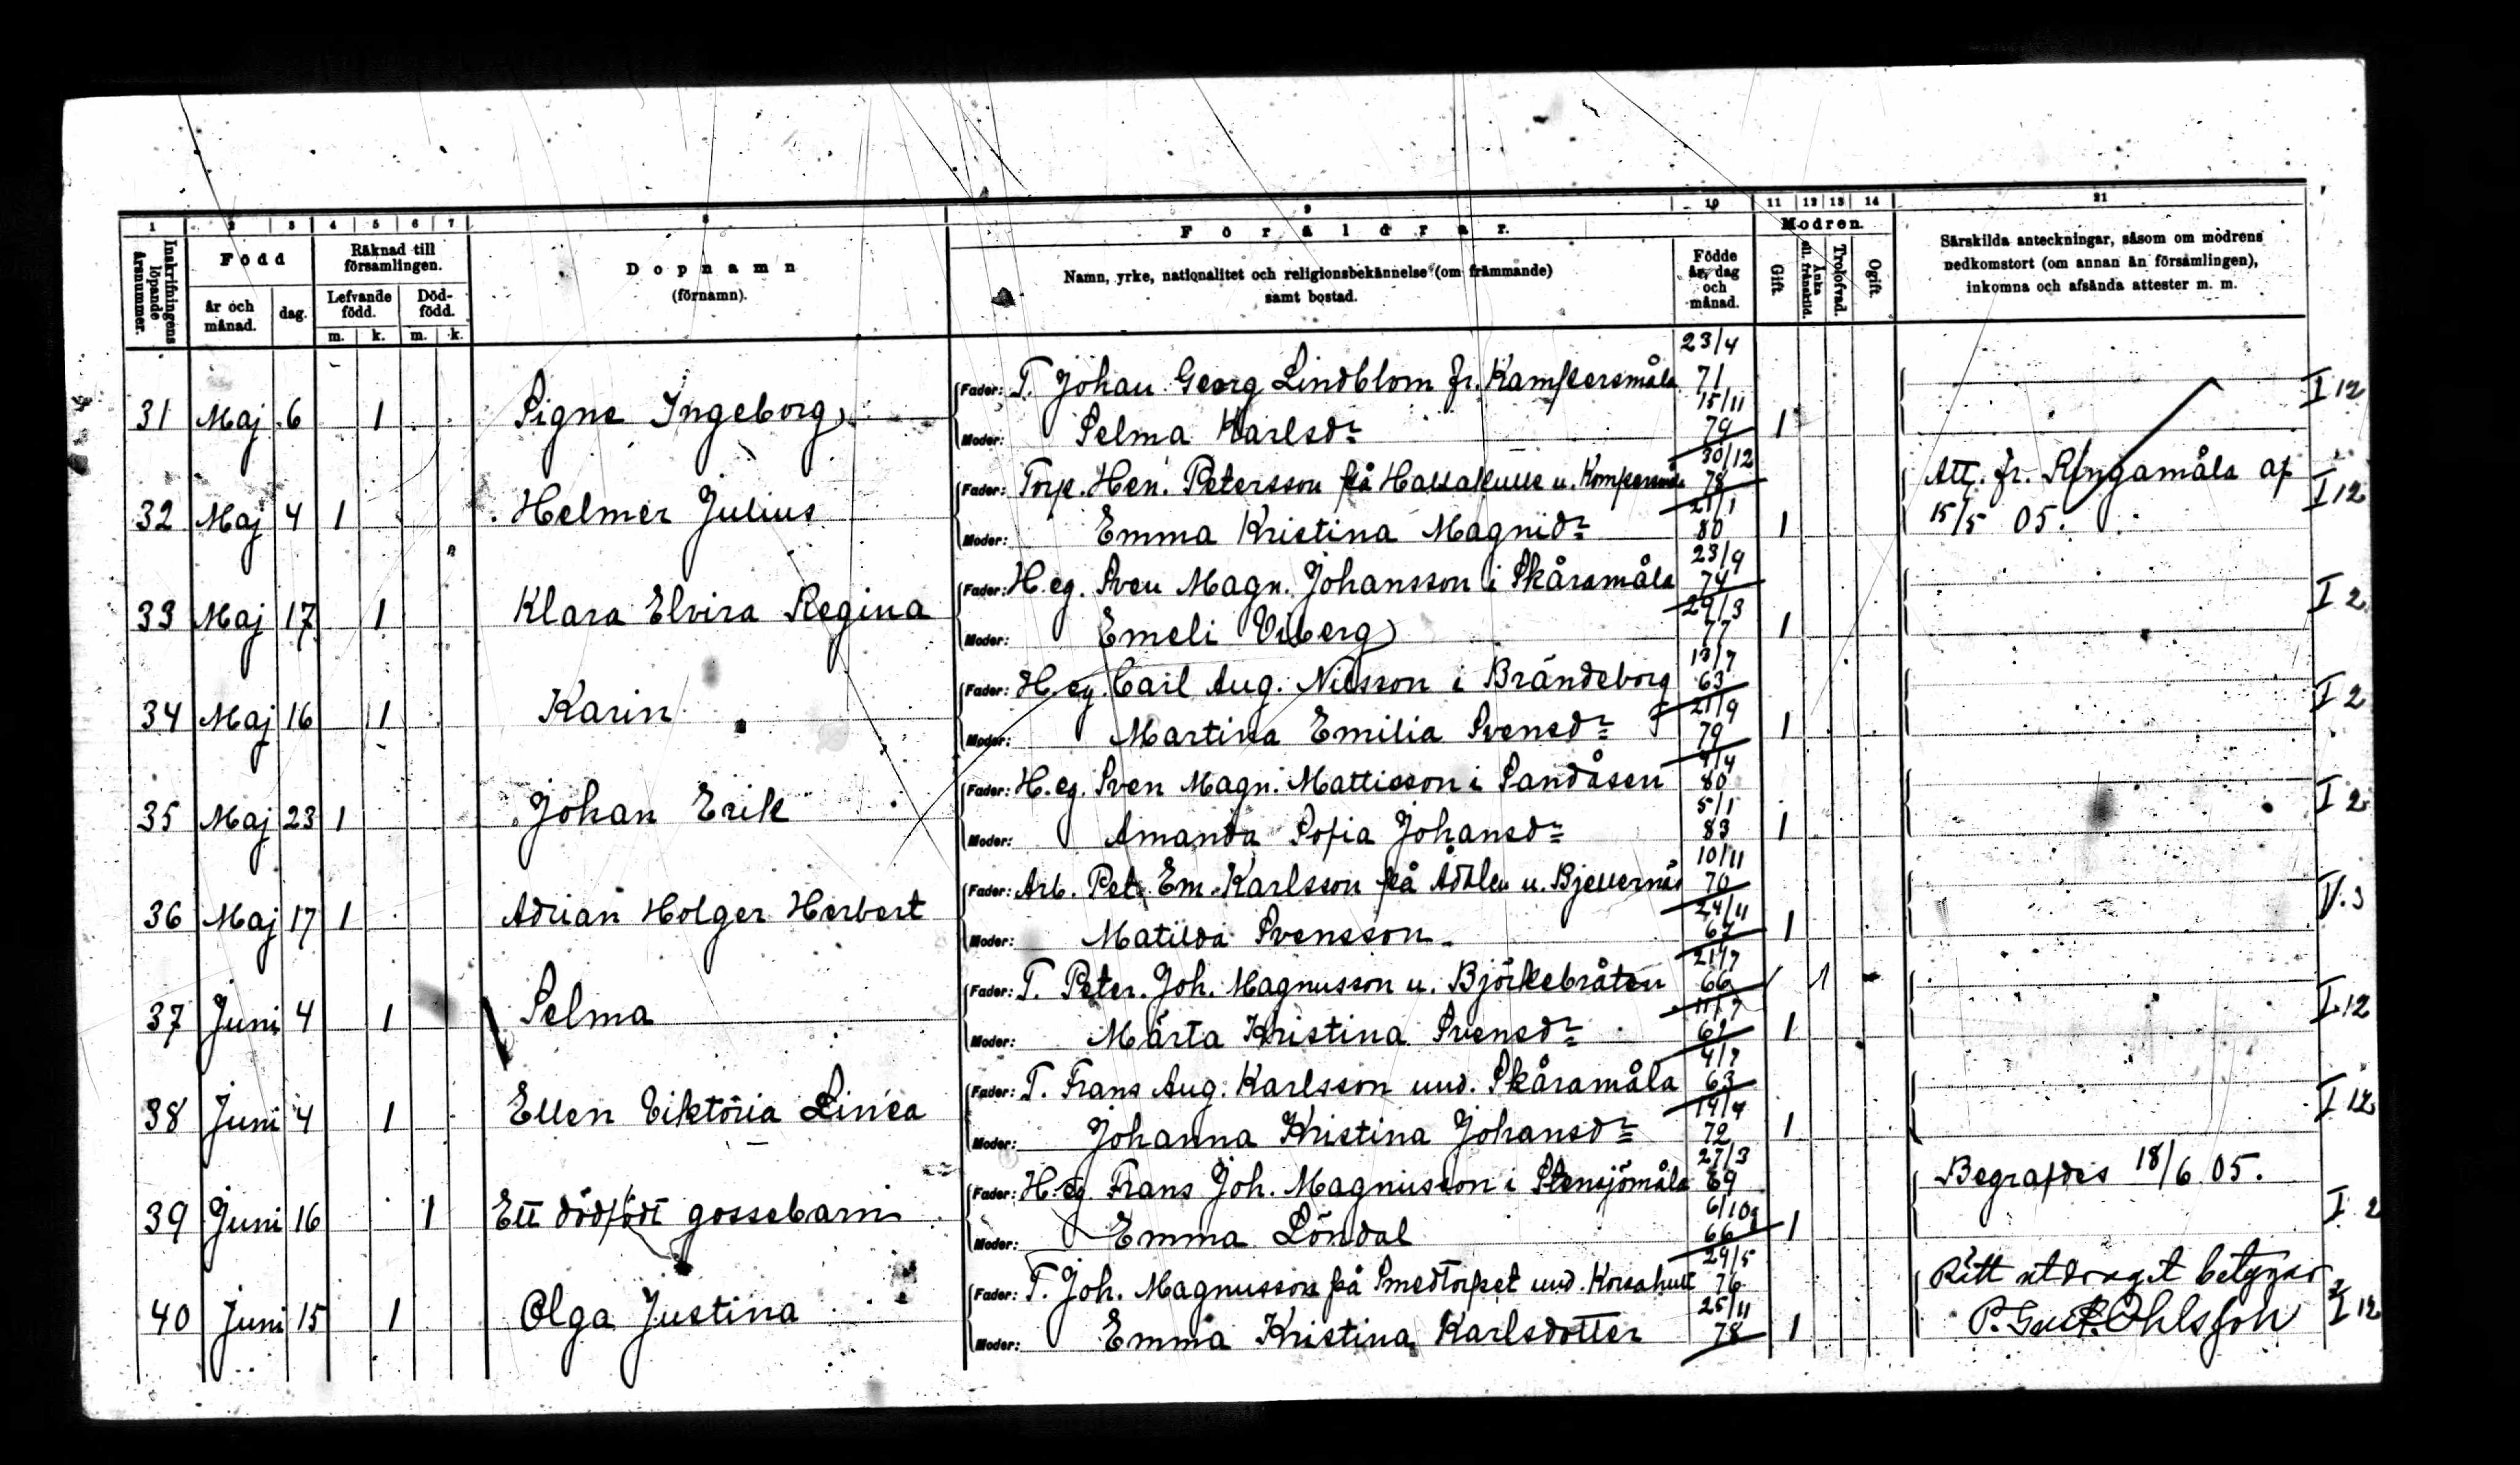 1 2 3 4 5 6 7 8 9 10 11 12 13 14 21
Inskrifningens löpande årsnummer.
Född
år och månad.
dag.
Räknad till församlingen.
Lefvande född.
Död-född.
m. k. m. k.
Dopnamn
(förnamn).
Föräldrar.
Namn, yrke, nationalitet och religionsbekännelse (om främmande)
samt bostad.
Födde år, dag och månad.
Modren.
Gift.
Änka ell. frånskild.
Trolofvad.
Ogift.
Särskilda anteckningar, såsom om modrens
nedkomstort (om annan än församlingen),
inkomna och afsända attester m. m.
Fader: T. Johan Georg Lindblom fr. Kampersmåla 23/4 71 I 12
31 Maj 6 1 Signe Ingeborg
Moder: Selma Karlsdr 15/11 79 1
Fader: Torp. Hen. Petersson på Hallakulle u. Kompersmåla 30/12 78 Att. fr. Ringamåla af I 12
32 Maj 4 1 Helmer Julius 15/5 05.
Moder: Emma Kristina Magnidr 21/1 80 1
Fader: H. eg. Sven Magn. Johansson i Skåramåla 23/9 74 I 2
33 Maj 17 1 Klara Elvira Regina
Moder: Emeli Viberg 29/3 77 1
Fader: H. eg. Carl Aug. Nilsson i Brändeborg 13/7 63 I 2
34 Maj 16 1 Karin
Moder: Martina Emilia Svensdr 21/9 79 1
Fader: H. eg. Sven Magn. Mattisson i Sandåsen 9/4 80 I 2
35 Maj 23 1 Johan Erik
Moder: Amanda Sofia Johansdr 5/1 83 1
Fader: Arb. Pet. Em. Karlsson på Ådalen u. Bjellernäs 10/11 70 V. 3
36 Maj 17 1 Adrian Holger Herbert
Moder: Matilda Svensson 24/11 67 1
Fader: T. Peter Joh. Magnusson u. Björkebråten 21/7 66 1 I 12
37 Juni 4 1 Selma
Moder: Märta Kristina Svensdr 11/7 62 1
Fader: T. Frans Aug. Karlsson und. Skåramåla 4/7 63 I 12
38 Juni 4 1 Ellen Viktoria Linéa
Moder: Johanna Kristina Johansdr 19/4 72 1
Fader: H. eg. Frans Joh. Magnusson i Stensjömåla 27/3 69 Begrafdes 18/6 05. I 2
39 Juni 16 1 Ett dödfödt gossebarn
Moder: Emma Löndal 6/10 66 1
Fader: T. Joh. Magnusson på Smedtorpet und. Korsahult 29/5 76 Rätt utdraget betygar
40 Juni 15 1 Olga Justina P. Ohlsson I 12
Moder: Emma Kristina Karlsdotter 25/11 78 1